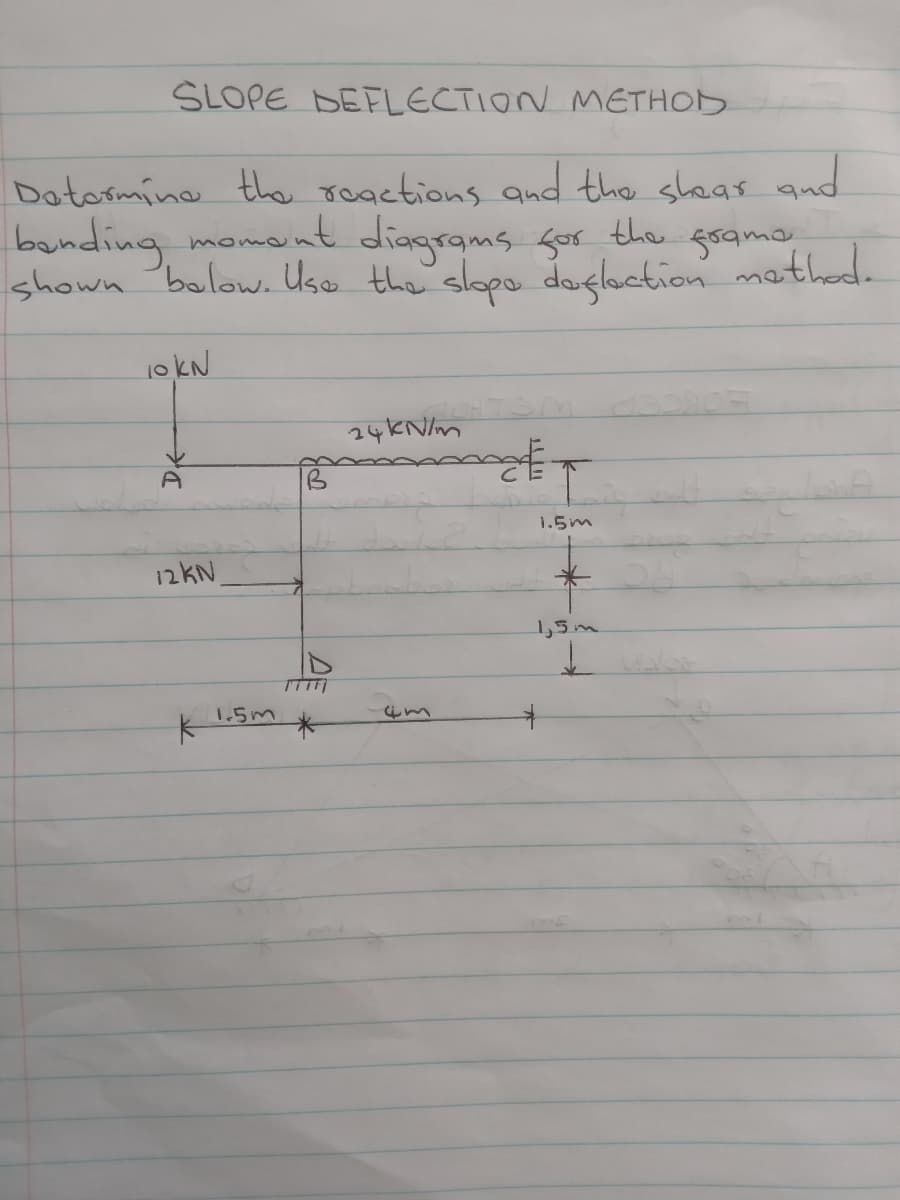 SLOPE DEFLECTION METHOD
Determine the reactions and the shear and
bending moment diagrams for the frame
shown below. Use the slope deflection method.
10 KN
24 KN/m
A
B
C
1.5m
12KN
1,5m
D
1.5m
4m